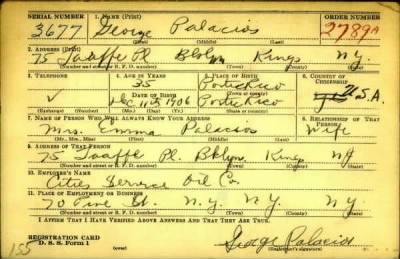 SERIAL NUMBER 1. NAME (Print) ORDER NUMBER
3677 George Palacios 2789A
(First) (Middle) (Last)
2. ADDRESS (Print)
75 Taaffe Pl Bklyn Kings N.Y.
(Number and street or R. F. D. number) (Town) (County) (State)
3. TELEPHONE 4. AGE IN YEARS 5. PLACE OF BIRTH 6. COUNTRY OF CITIZENSHIP
35 Porto Rico
(Town or county)
DATE OF BIRTH
✓ Dec 11th 1906 Porto Rico U.S.A.
(Exchange) (Number) (Mo.) (Day) (Yr.) (State or country)
7. NAME OF PERSON WHO WILL ALWAYS KNOW YOUR ADDRESS 8. RELATIONSHIP OF THAT PERSON
Mrs. Emma Palacios Wife
(Mr., Mrs., Miss) (First) (Middle) (Last)
9. ADDRESS OF THAT PERSON
75 Taaffe Pl. Bklyn. Kings NY
(Number and street or R. F. D. number) (Town) (County) (State)
10. EMPLOYER'S NAME
Cities Service Oil Co.
11. PLACE OF EMPLOYMENT OR BUSINESS
70 Pine St. N.Y. N.Y. N.Y.
(Number and street or R. F. D. number) (Town) (County) (State)
I AFFIRM THAT I HAVE VERIFIED ABOVE ANSWERS AND THAT THEY ARE TRUE.
REGISTRATION CARD
D. S. S. Form 1 (over) George Palacios
155 (Registrant's signature)